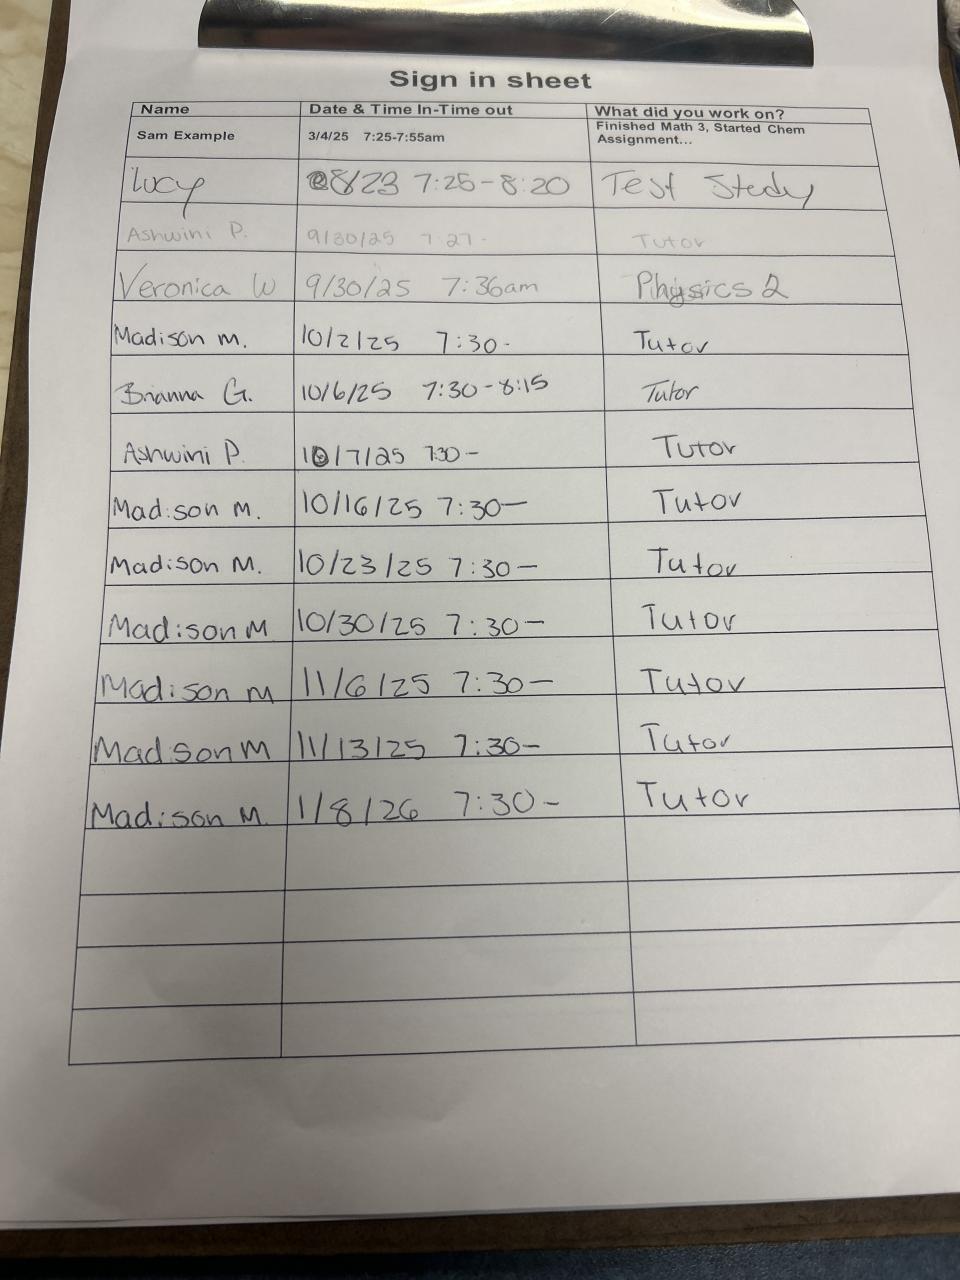 Sign in sheet
Name Date & Time In-Time out What did you work on?
Sam Example 3/4/25 7:25-7:55am Finished Math 3, Started Chem
Assignment...
Lucy 8/23 7:25-8:20 Test Stedy
Ashwini P. 9/30/25 7:27- Tutor
Veronica W 9/30/25 7:36am Physics 2
Madison M. 10/2/25 7:30- Tutor
Brianna G. 10/6/25 7:30-8:15 Tutor
Ashwini P. 10/7/25 7:30- Tutor
Madison M. 10/16/25 7:30- Tutor
Madison M. 10/23/25 7:30- Tutor
Madison M 10/30/25 7:30- Tutor
Madison M 11/6/25 7:30- Tutor
Madison M 11/13/25 7:30- Tutor
Madison M. 1/8/26 7:30- Tutor